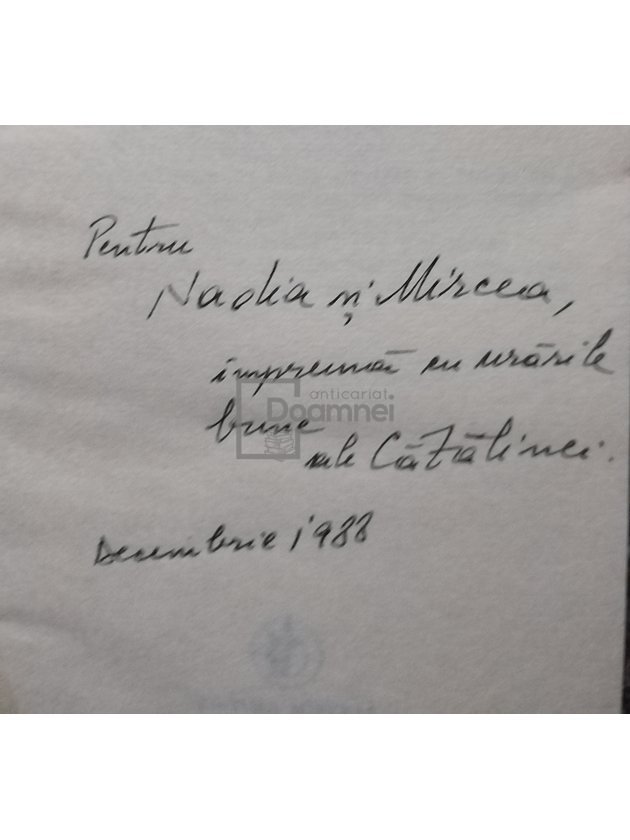 Pentru
Nadia și Mircea,
împreună cu urările
anticariat
Doamnei
bune
ale Cătălinei.
Decembrie 1988